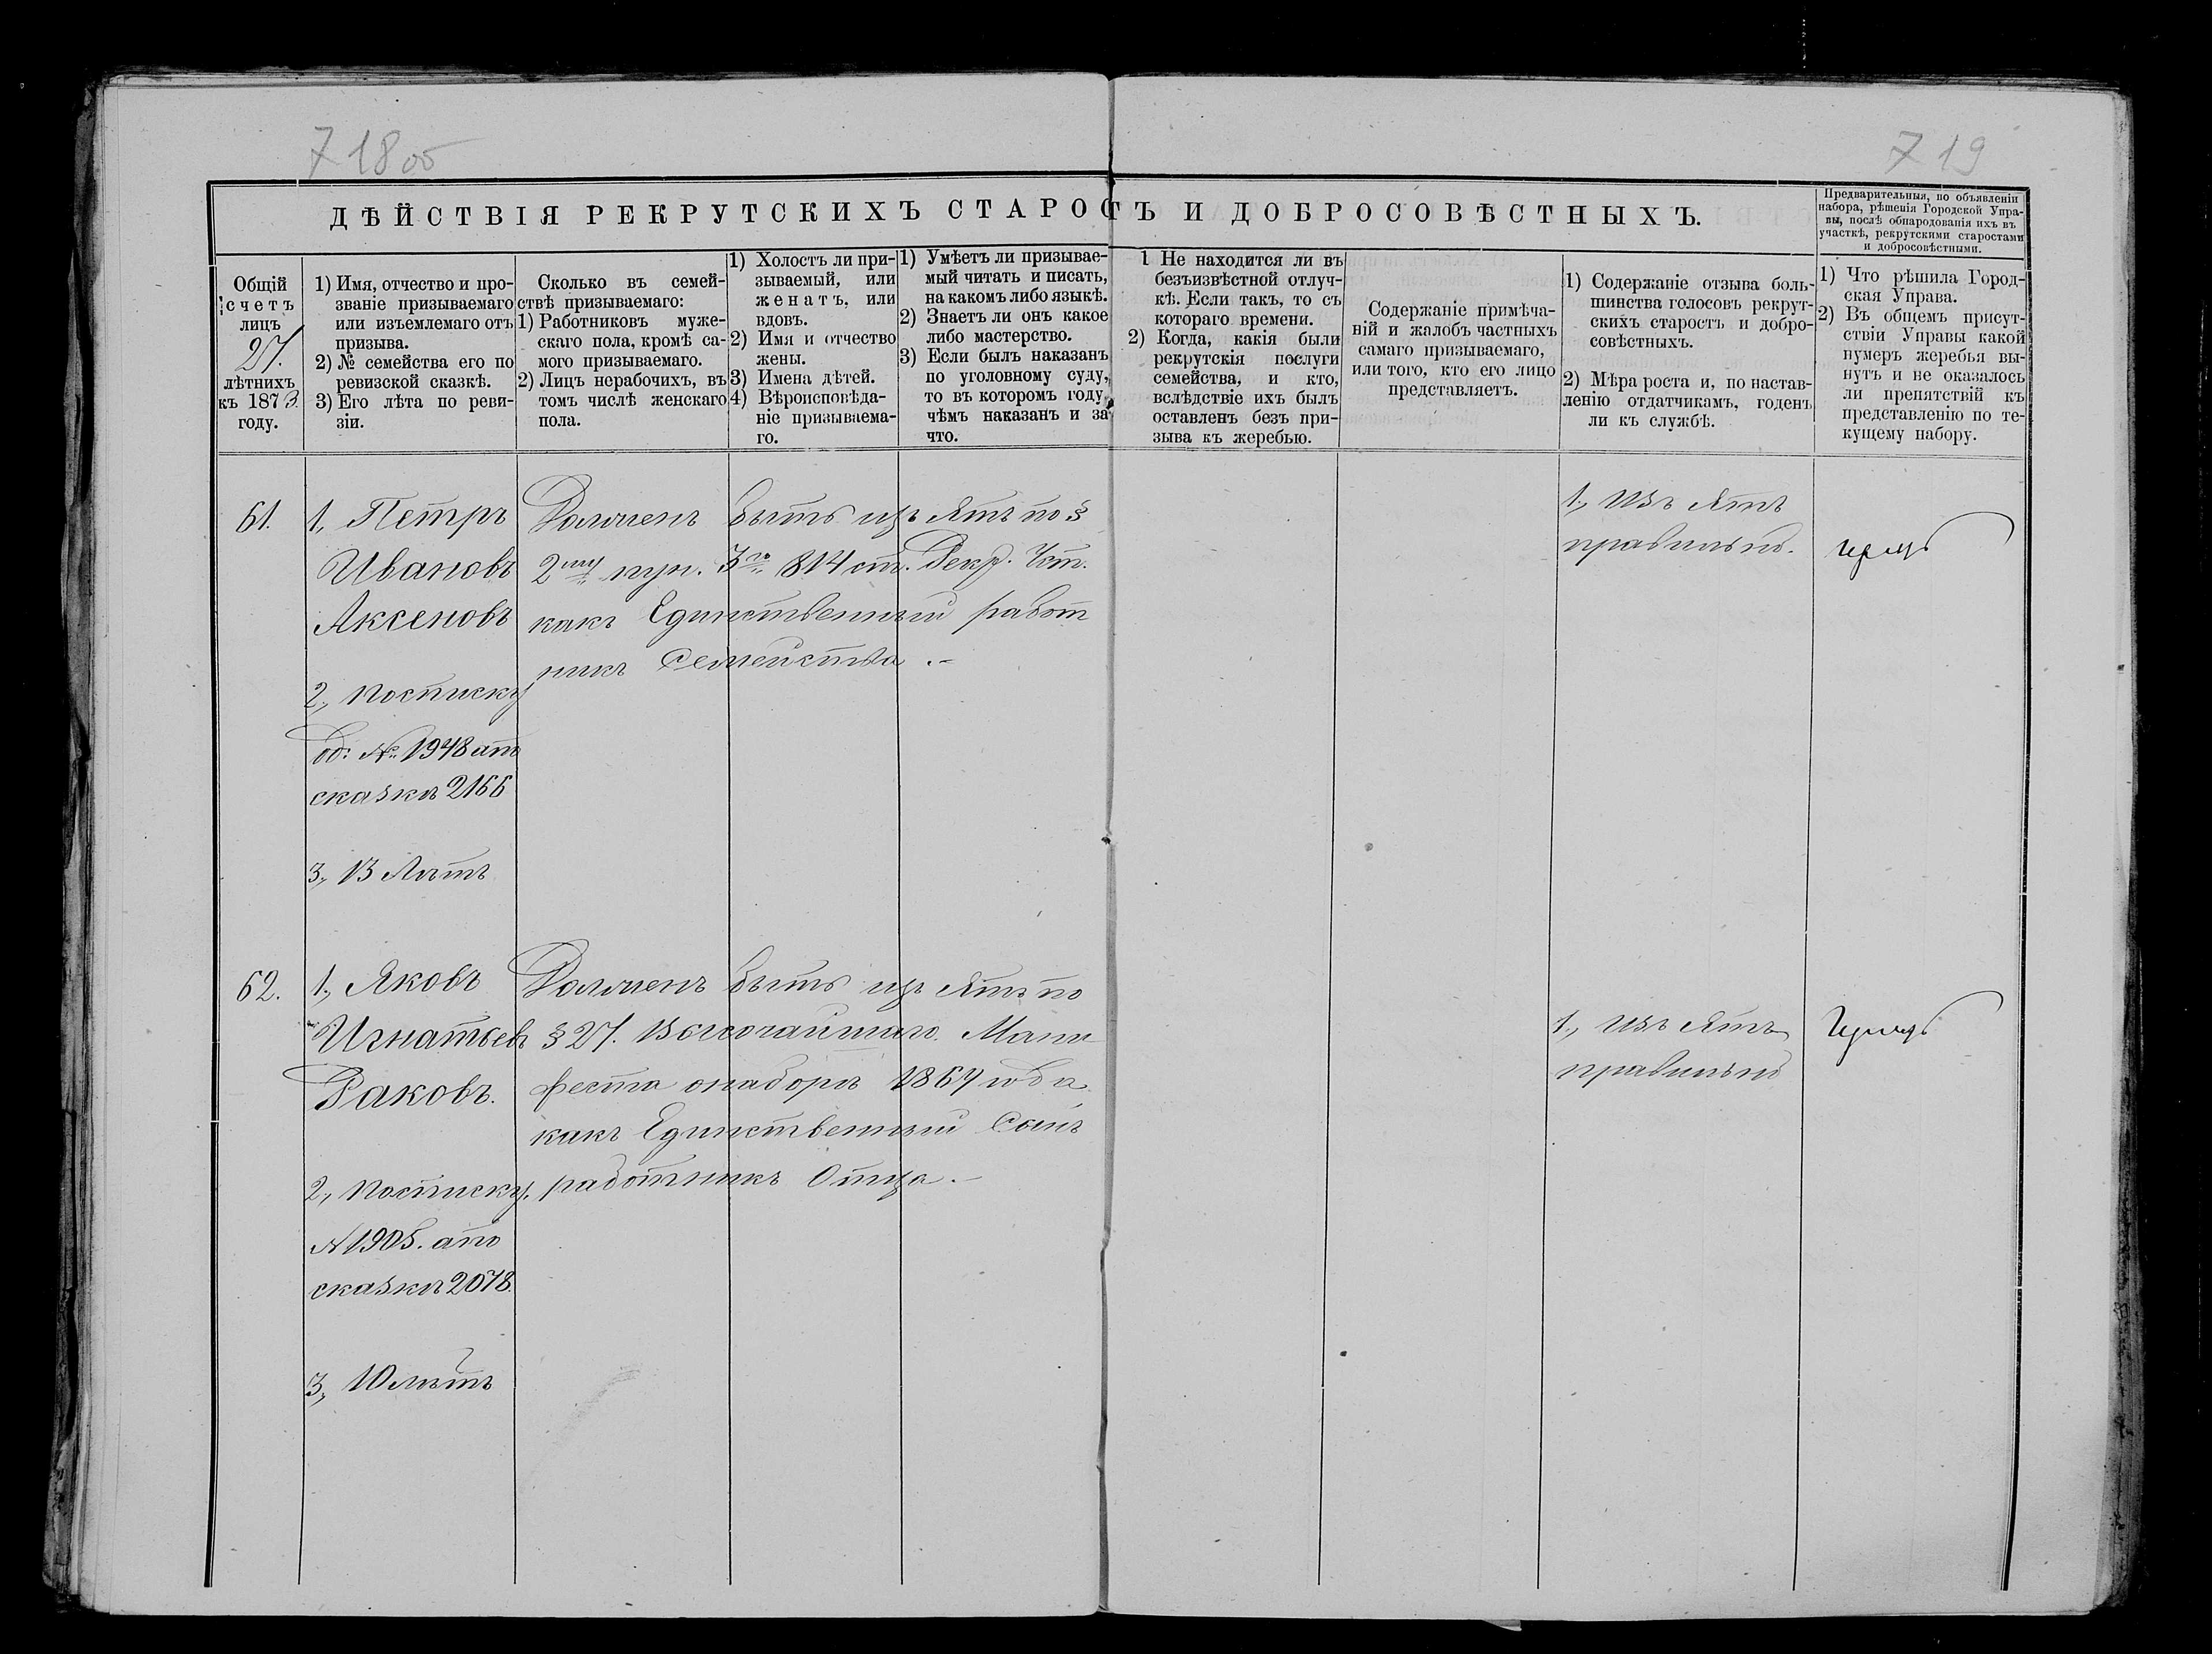 7 18 об
7 19
ДѢЙСТВІЯ РЕКРУТСКИХЪ СТАРОСТЪ И ДОБРОСОВѢСТНЫХЪ.
Предварительныя, по объявленіи
набора, рѣшенія Городской Упра-
вы, послѣ обнародованія ихъ въ
участкѣ, рекрутскими старостами
и добросовѣстными.
Общій
счетъ
лицъ
27.
лѣтнихъ
къ 1873.
году.
1) Имя, отчество и про-
званіе призываемаго
или изъемлемаго отъ
призыва.
2) № семейства его по
ревизской сказкѣ.
3) Его лѣта по реви-
зіи.
Сколько въ семей-
ствѣ призываемаго:
1) Работниковъ муже-
скаго пола, кромѣ са-
мого призываемаго.
2) Лицъ нерабочихъ, въ
томъ числѣ женскаго
пола.
1) Холостъ ли при-
зываемый, или
женатъ, или
вдовъ.
2) Имя и отчество
жены.
3) Имена дѣтей.
4) Вѣроисповѣда-
ніе призываема-
го.
1) Умѣетъ ли призывае-
мый читать и писать,
на какомъ либо языкѣ.
2) Знаетъ ли онъ какое
либо мастерство.
3) Если былъ наказанъ
по уголовному суду,
то въ которомъ году,
чѣмъ наказанъ и за
что.
1 Не находится ли въ
безъизвѣстной отлуч-
кѣ. Если такъ, то съ
котораго времени.
2) Когда, какія были
рекрутскія послуги
семейства, и кто,
вслѣдствіе ихъ былъ
оставленъ безъ при-
зыва къ жеребью.
Содержаніе примѣча-
ній и жалобъ частныхъ
самаго призываемаго,
или того, кто его лицо
представляетъ.
1) Содержаніе отзыва боль-
шинства голосовъ рекрут-
скихъ старостъ и добро-
совѣстныхъ.
2) Мѣра роста и, по настав-
ленію отдатчикамъ, годенъ
ли къ службѣ.
1) Что рѣшила Город-
ская Управа.
2) Въ общемъ присут-
ствіи Управы какой
нумеръ жеребья вы-
нутъ и не оказалось
ли препятствій къ
представленію по те-
кущему набору.
61.
1, Петръ
Ивановъ
Аксеновъ
2, посписку
об: № 1948 апо
сказкѣ 2166
3, 13 Лѣтъ
Долженъ быть изъ ятъ по §
2му пун. 3го 814 ст. Рекр. Уст.
какъ Единственный работ
никъ семейства .-
1., изъ ятъ
правильно.
62.
1, Яковъ
Игнатьевъ
Раковъ.
2, посписку.
№ 1905. апо
сказкѣ 2078.
3, 10 лѣтъ
Долженъ быть изъ ятъ по
§ 27. Высочайшаго. Мани
феста онаборѣ 1867 года
какъ Единственный Сынъ
работникъ Отца .-
1., изъ ятъ
правильно